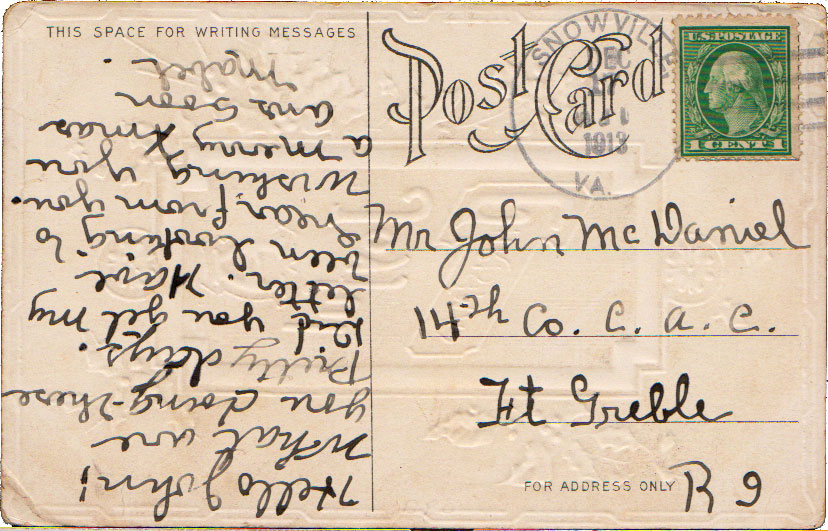 THIS SPACE FOR WRITING MESSAGES
Hello John!
What are
you doing these
Pretty days.
Did you get my
letter. Have
been looking to
hear from you.
Wishing you
a merry Xmas
ans soon
Mabel.
Post Card
SNOWVILLE
DEC
1913
VA.
U.S. POSTAGE
1 CENT 1
Mr John McDaniel
14th Co. C. A. C.
Ft Greble
FOR ADDRESS ONLY
R 9